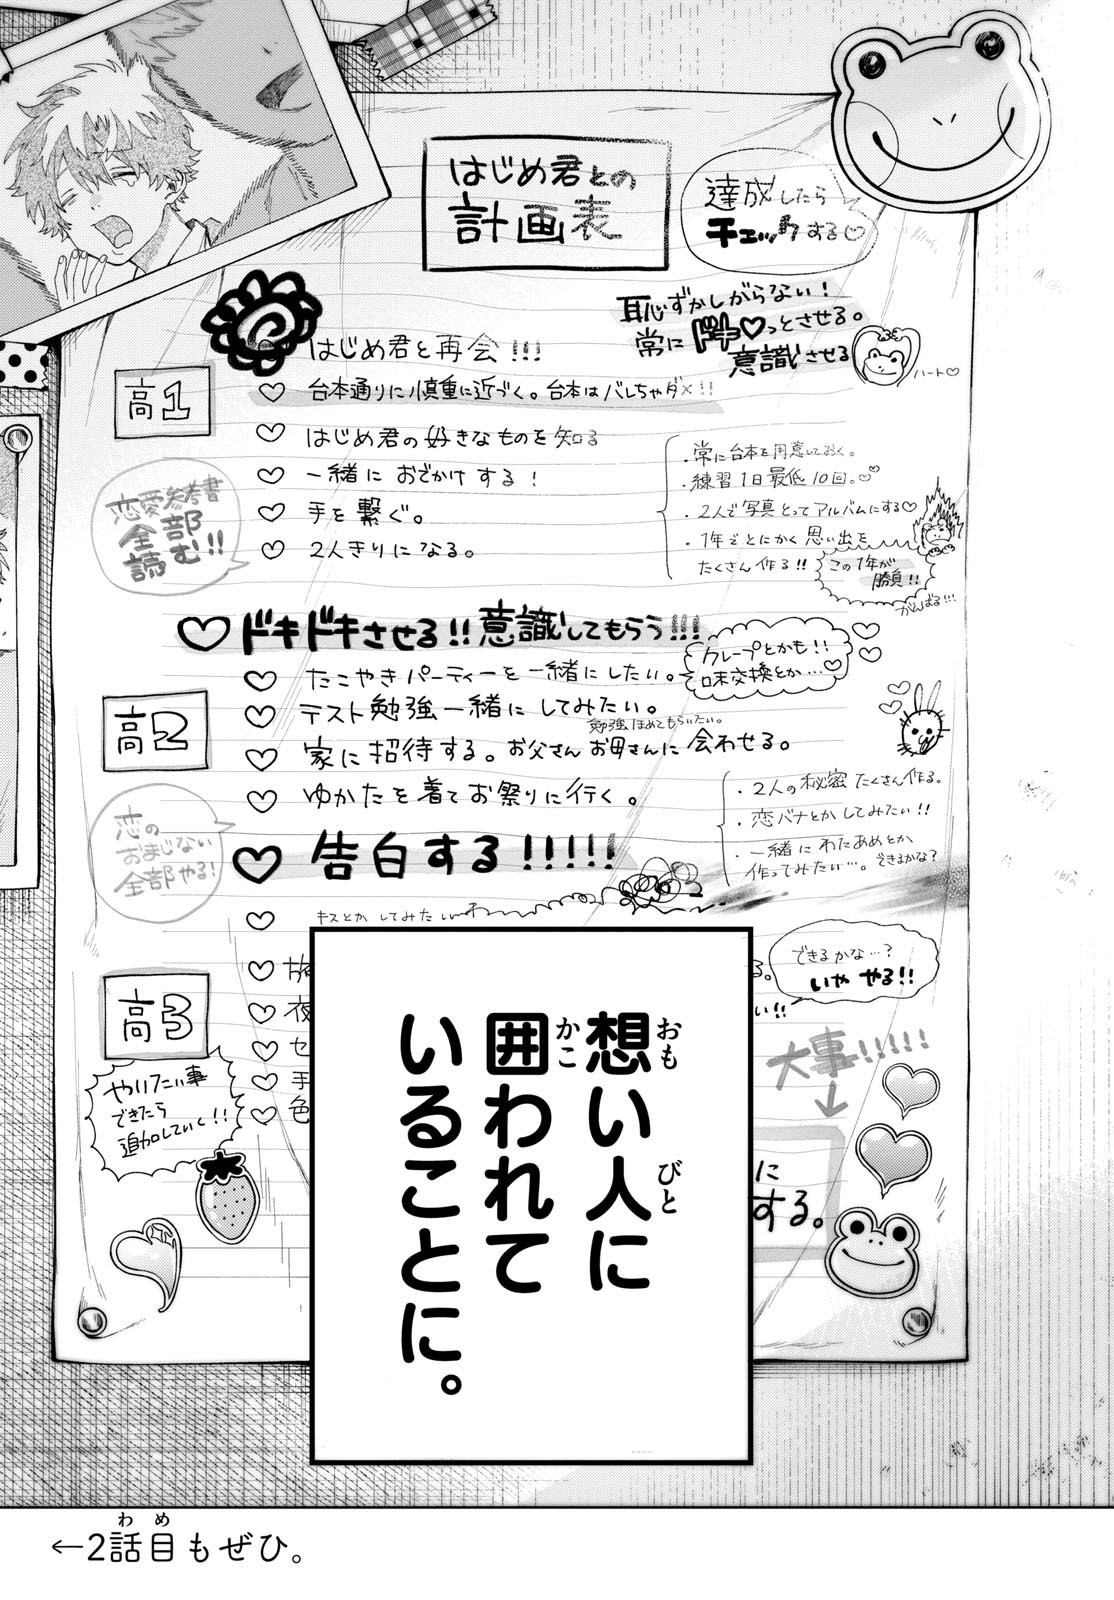 はじめ君との
計画表
達成したら
チェックする♡
恥ずかしがらない！
常にドキ♡っとさせる。
意識させる
ハート♡
高1
はじめ君と再会!!!
♡ 台本通りに慎重に近づく。台本はバレちゃダメ!!
♡ はじめ君の好きなものを知る
♡ 一緒におでかけする！
♡ 手を繋ぐ。
♡ 2人きりになる。
恋愛参考書
全部
読む!!
・常に台本を用意しておく。
・練習1日最低10回。♡♡
・2人で写真とってアルバムにする♡
・1年ごとにかく思い出を
たくさん作る!!
この1年が
勝負!!
がんばる!!!
♡ドキドキさせる!!意識してもらう!!!
♡ たこやきパーティーを一緒にしたい。
クレープとかも!!
味交換とか…♡
高2
♡ テスト勉強一緒にしてみたい。
勉強ほめてもらいたい。
♡ 家に招待する。お父さんお母さんに会わせる。
♡ ゆかたを着てお祭りに行く。
恋の
おまじない
全部やる!
・2人の秘密たくさん作る。
・恋バナとかしてみたい!!
・一緒にわたあめとか
作ってみたい…。できるかな?
♡告白する!!!!!
♡ キスとかしてみたい
できるかな…?
いややる!!
高3
♡
♡ 夜
♡ セ
♡ 手
♡ 色
る。
い!!
大事!!!!!
↓
に
する。
やりたい事
できたら
追加していく!!
想い人に
おも
びと
囲われて
かこ
いることに。
←2話目もぜひ。
わめ